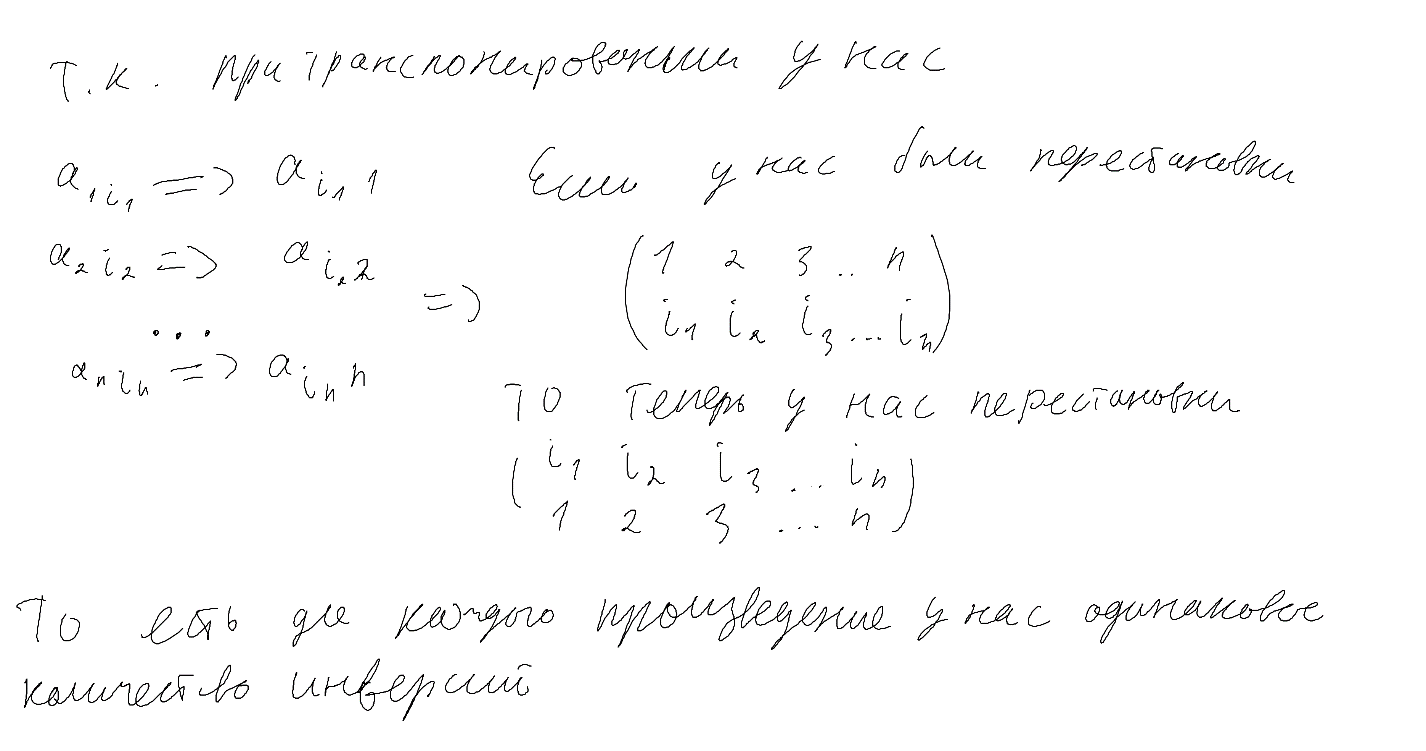 т.к. при транспонировании у нас
a₁ᵢ₁ => aᵢ₁1 Если у нас были перестановки
a₂ᵢ₂ => aᵢ₂2 => (1 2 3 .. n)
... (i₁ i₂ i₃ ... iₙ)
aₙᵢₙ => aᵢₙn
то теперь у нас перестановки
(i₁ i₂ i₃ ... iₙ)
(1 2 3 ... n)
То есть для каждого произведение у нас одинаковое
количество инверсий